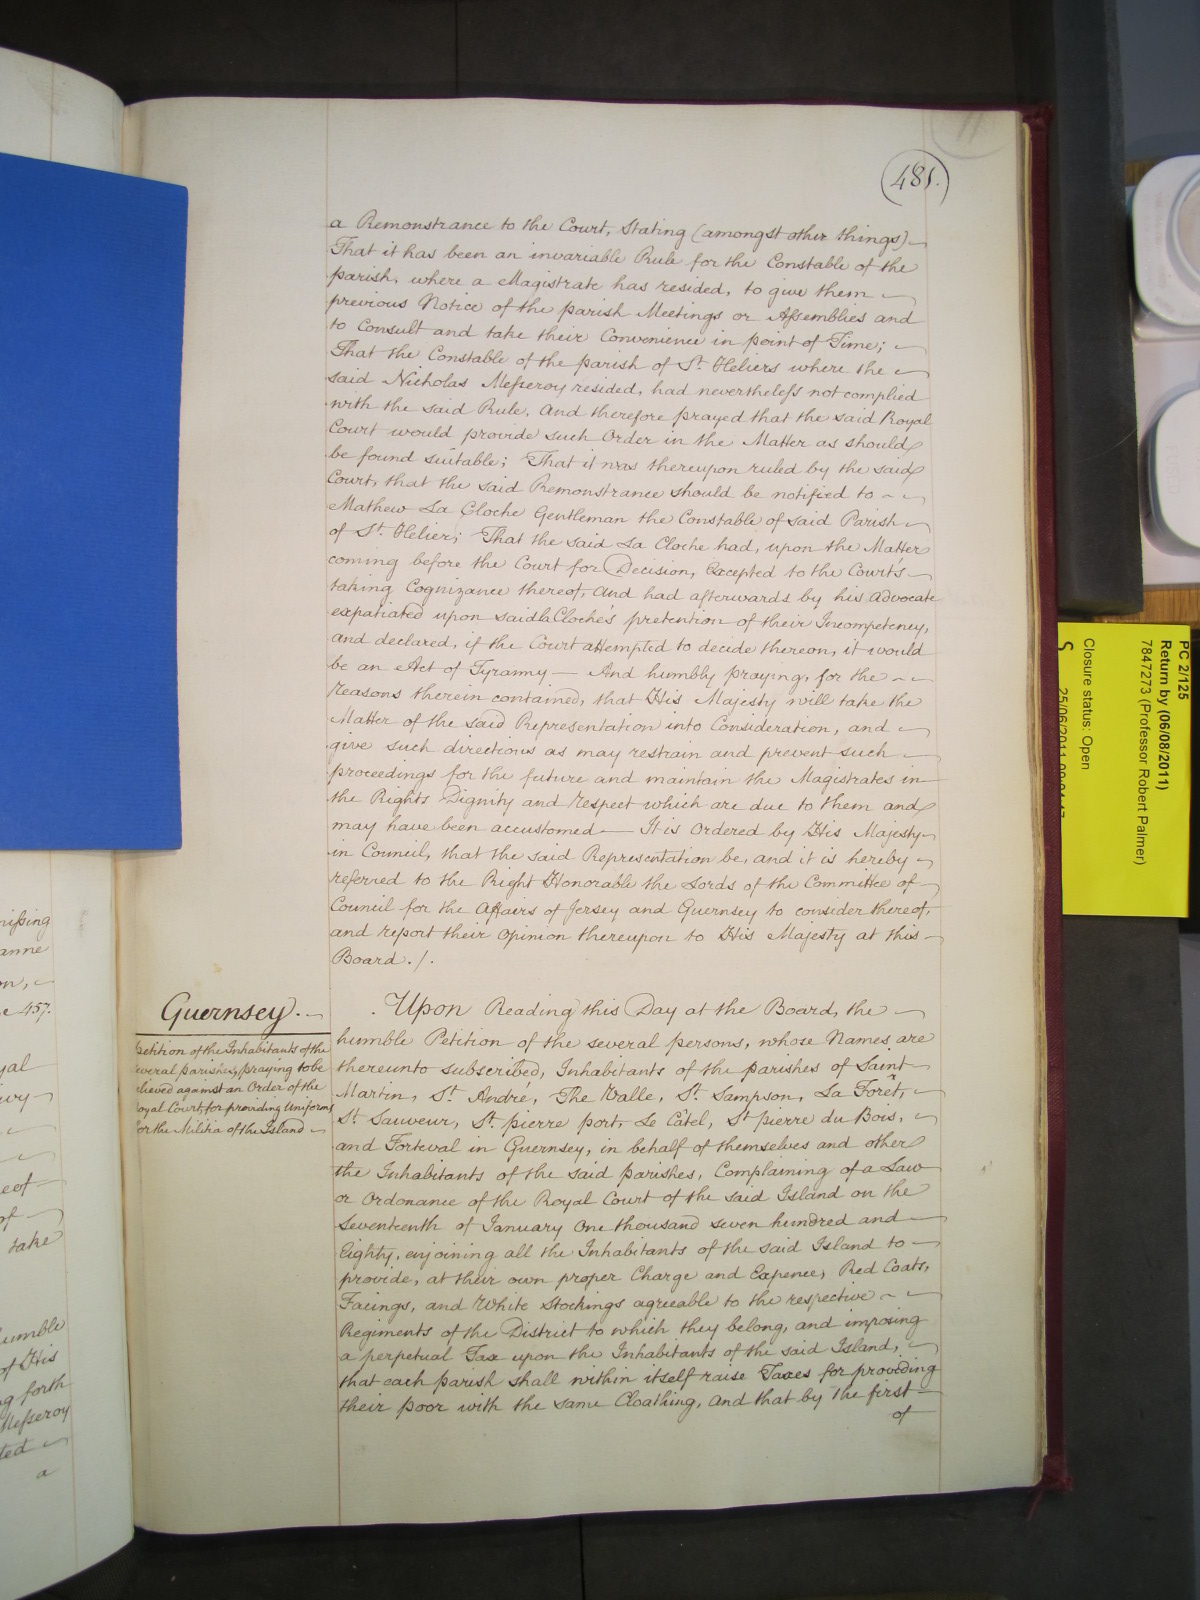 481.
a Remonstrance to the Court, Stating (amongst other things)
That it has been an invariable Rule for the Constable of the
parish, where a Magistrate has resided, to give them
previous Notice of the parish Meetings or Assemblies and
to Consult and take their Convenience in point of Time;
That the Constable of the parish of St. Heliers where the
said Nicholas Messeroy resided, had nevertheless not complied
with the said Rule, And therefore prayed that the said Royal
Court would provide such Order in the Matter as should
be found suitable; That it was thereupon ruled by the said
Court, that the said Remonstrance should be notified to
Mathew La Cloche Gentleman the Constable of said Parish
of St. Helier; That the said La Cloche had, upon the Matter
coming before the Court for Decision, Excepted to the Court's
taking Cognizance thereof, And had afterwards by his Advocate
expatiated upon said la Cloche's pretention of their Incompetency,
and declared, if the Court attempted to decide thereon, it would
be an Act of Tyranny — And humbly praying, for the
reasons therein contained, that His Majesty will take the
Matter of the said Representation into Consideration, and
give such directions as may restrain and prevent such
proceedings for the future and maintain the Magistrates in
the Rights Dignity and respect which are due to them and
may have been accustomed — It is Ordered by His Majesty
in Council, that the said Representation be, and it is hereby
referred to the Right Honorable the Lords of the Committee of
Council for the Affairs of Jersey and Guernsey to consider thereof,
and report their Opinion thereupon to His Majesty at this
Board. /.
Guernsey.
Petition of the Inhabitants of the
several parishes, praying to be
relieved against an Order of the
Royal Court, for providing Uniforms
for the Militia of the Island
Upon Reading this Day at the Board, the
humble Petition of the several persons, whose Names are
thereunto subscribed, Inhabitants of the parishes of Saint
Martin, St. André, The Valle, St. Sampson, La Forêt,
St. Sauveur, St. pierre port, Le Câtel, St pierre du Bois,
and Torteval in Guernsey, in behalf of themselves and other
the Inhabitants of the said parishes, Complaining of a Law
or Ordonance of the Royal Court of the said Island on the
Seventeenth of January One thousand seven hundred and
Eighty, enjoining all the Inhabitants of the said Island to
provide, at their own proper Charge and Expence, Red Coats,
Facings, and White Stockings agreeable to the respective
Regiments of the District to which they belong, and imposing
a perpetual Tax upon the Inhabitants of the said Island,
that each parish shall within itself raise Taxes for providing
their poor with the same Cloathing, and that by the first
of
anne
457.
take
umble
of His
forth
Messeroy
a
PC 2/125
Return by (06/08/2011)
7847273 (Professor Robert Palmer)
Closure status: Open
S